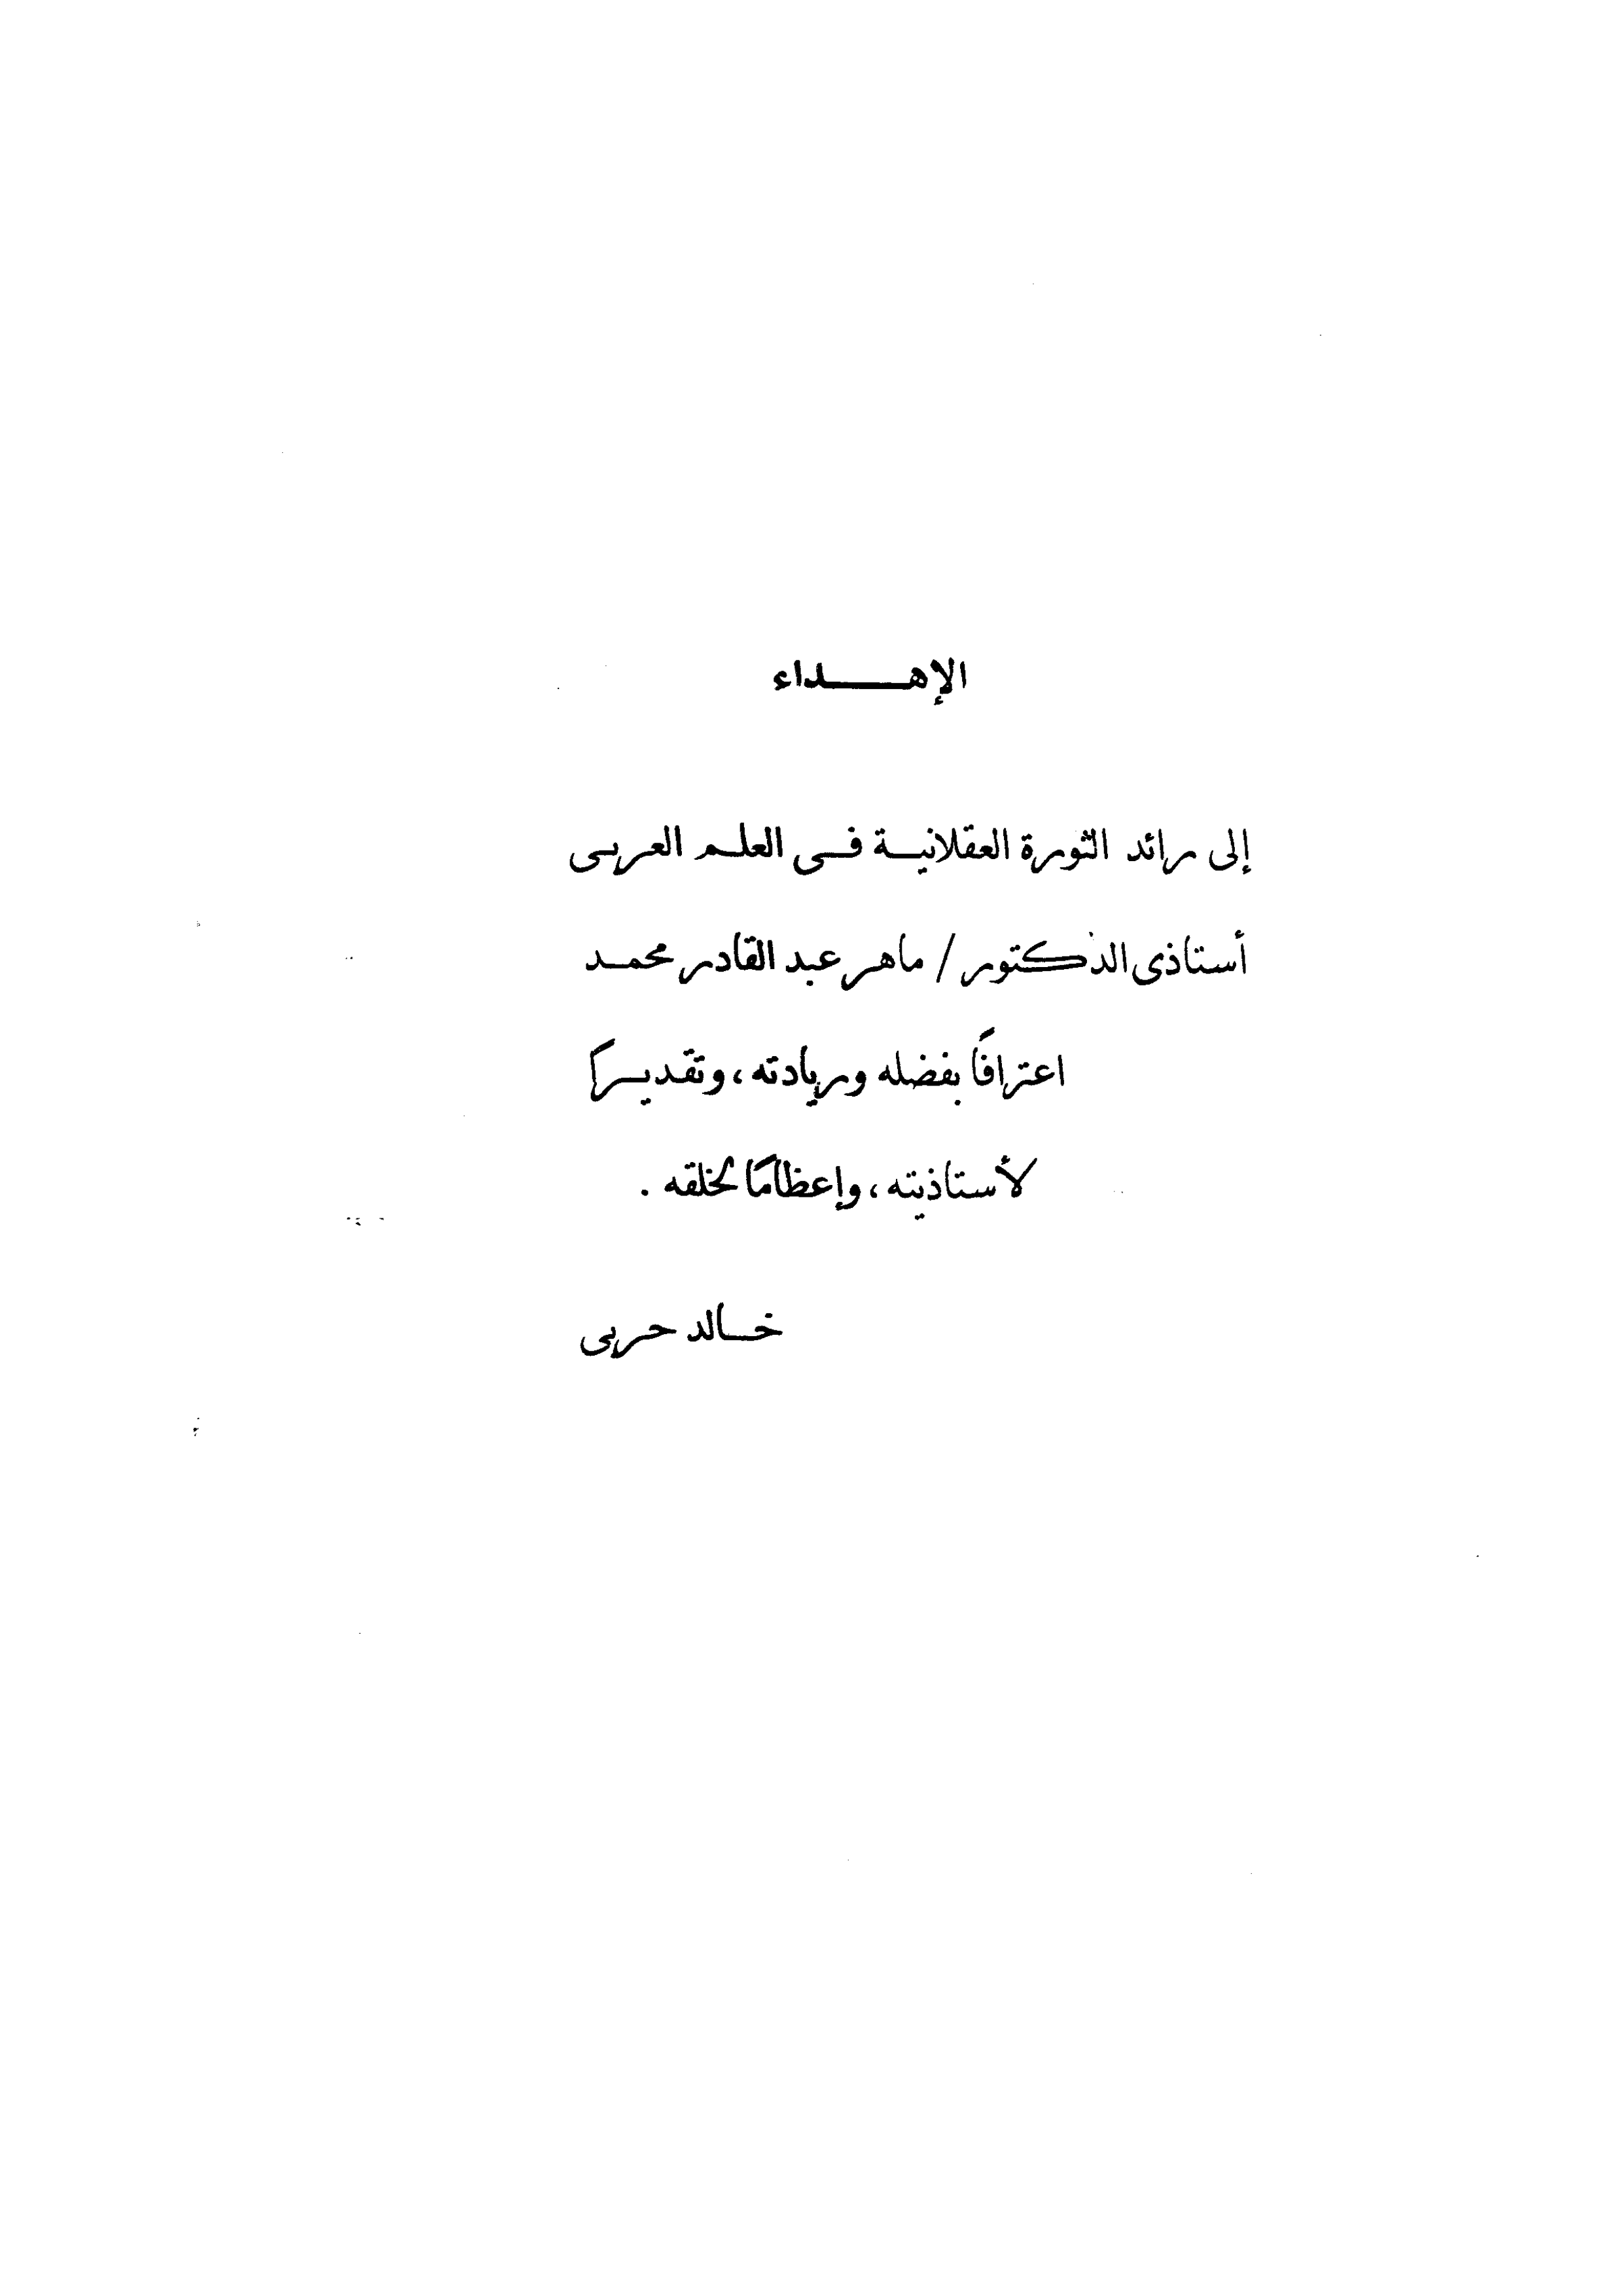 الإهداء
إلى رائد الثورة العقلانية فى العلم العربى
أستاذى الدكتور / ماهر عبد القادر محمد
اعترافًا بفضله وريادته، وتقديرًا
لأستاذيته، وإعظامًا لخلقه .
خالد حربى